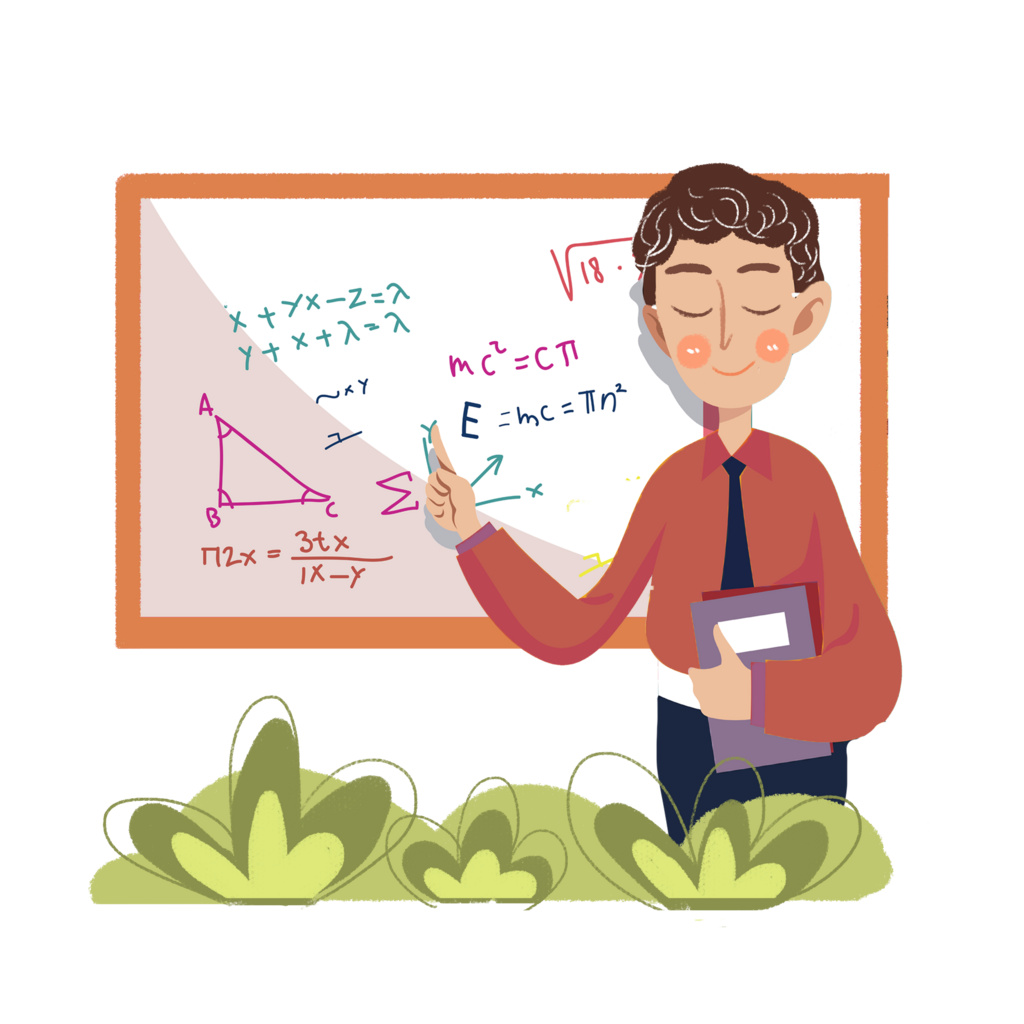 √18 ·
x + yx − z = λ
y + x + λ = λ
mc² = cπ
~ xy
E = mc = πn²
A
B
C
Σ
Y
x
π2x = 3tx / 1x − y